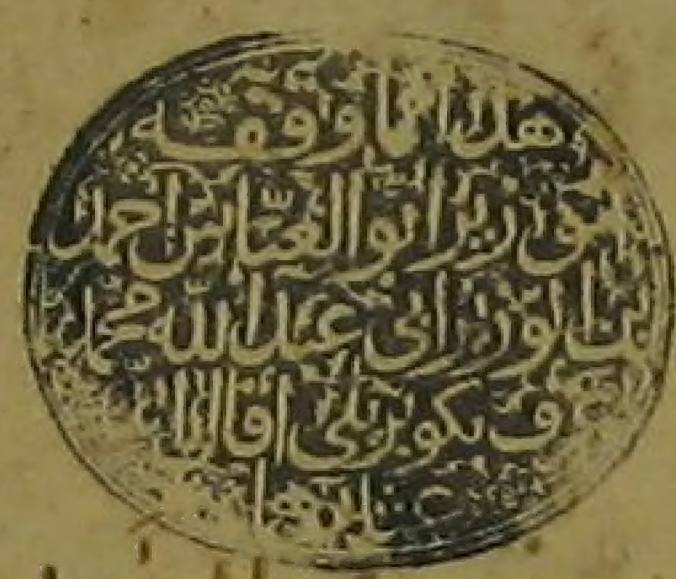 هذا مما وقفه
الوزير ابو العبّاس احمد
بن الوزير ابي عبد الله محمد
عرف بكوبريلي أقال الله
عثارهما